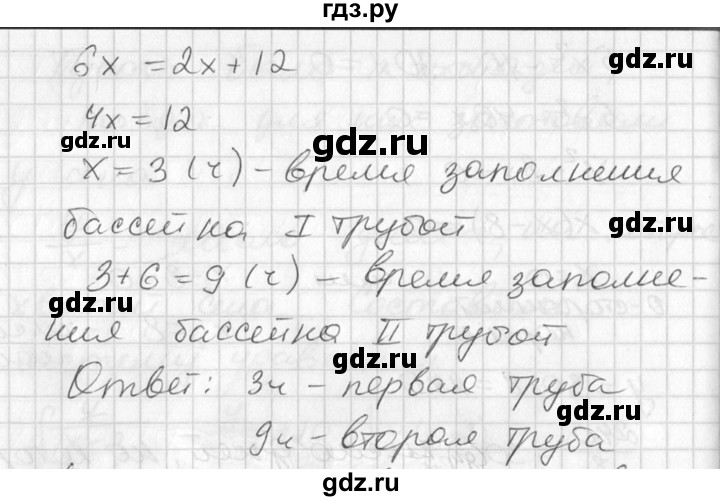 гдз.ру
6x = 2x + 12
4x = 12
x = 3 (ч) - время заполнения
бассейна I трубой
3 + 6 = 9 (ч) - время заполне-
ния бассейна II трубой
Ответ: 3ч - первая труба
9ч - вторая труба
gdz.ru
gdz.ru
gdz.ru
gdz.ru
gdz.ru
gdz.ru
gdz.ru
gdz.ru
gdz.ru
gdz.ru
gdz.ru